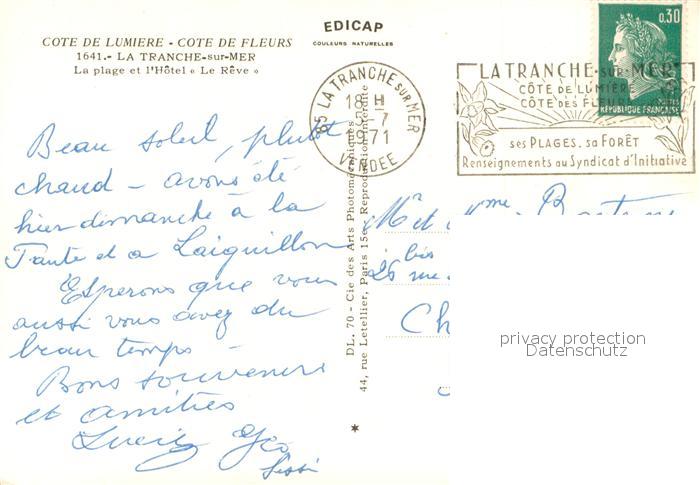 EDICAP
COULEURS NATURELLES
COTE DE LUMIERE - COTE DE FLEURS
1641.- LA TRANCHE-sur-MER
La plage et l'Hôtel « Le Rêve »
0,30
POSTES
RÉPUBLIQUE FRANÇAISE
85 LA TRANCHE SUR MER
18 H
-7
1971
VENDÉE
LA TRANCHE-sur-MER
CÔTE DE LUMIÈRE
CÔTE DES FLEURS
ses PLAGES. sa FORÊT
Renseignements au Syndicat d'Initiative
Beau soleil, plutôt
chaud - avons été
hier dimanche à la
Faute et a Laiguillon
Esperons que vous
aussi vous avez du
beau temps -
Bons souvenirs
et amitiés
DL. 70 - Cie des Arts Photomécaniques
44, rue Letellier, Paris 15e. Reproduction interdite
Mr et Mme
26 bis rue
Ch
privacy protection
Datenschutz